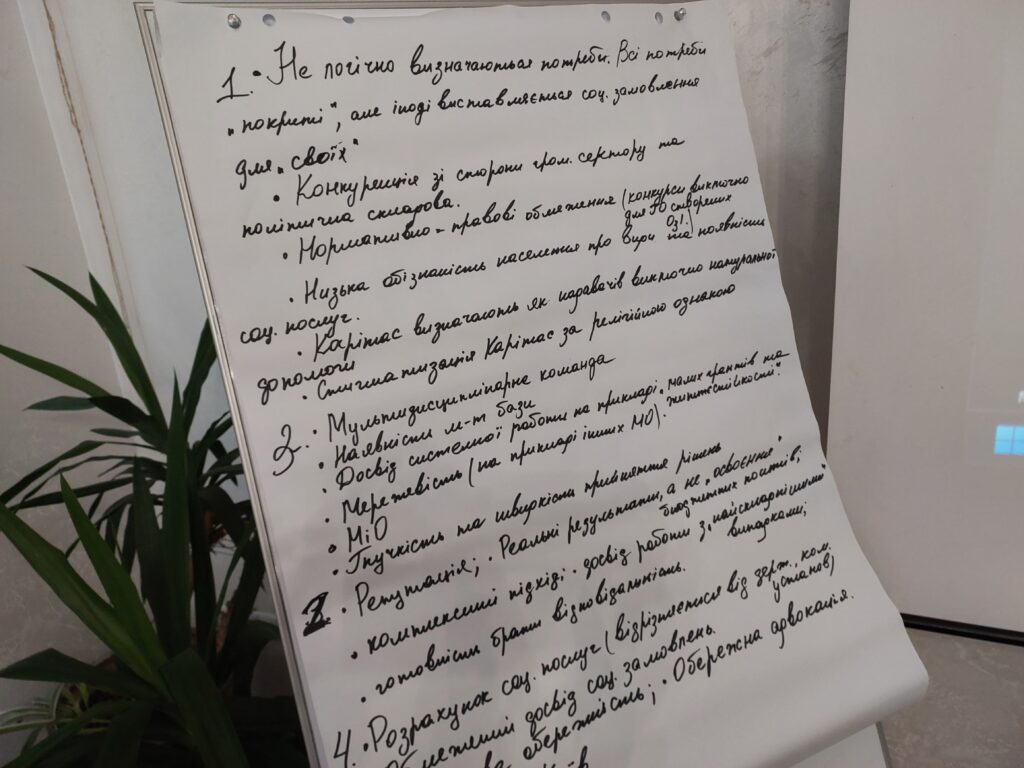 1. • Не логічно визначаються потреби. Всі потреби
"покриті", але іноді виставляється соц. замовлення
для "своїх"
• Конкуренція зі сторони гром. сектору та
політична складова.
• Нормативно-правові обмеження (конкурси виключно
для ГО створених
ОЗ!)
• Низька обізнаність населення про види та наявність
соц. послуг.
• Карітас визначають як надавачів виключно натуральної
допомоги
• Стигматизація Карітас за релігійною ознакою
2. • Мультидисциплінарна команда
• Наявність м-т бази
• Досвід системної роботи на прикладі "малих грантів та
життєстійкості".
• Мережевість (на прикладі інших МО).
• МіО
• Гнучкість та швидкість прийняття рішень
3. • Репутація; • Реальні результати, а не "освоєння"
бюджетних коштів;
• комплексний підхід; • досвід роботи з "найскладнішими"
випадками;
• готовність брати відповідальність.
4. • Розрахунок соц. послуг (відрізняється від держ., ком.
установ)
досвід соц. замовлень.
обережність; • Обережна адвокація.